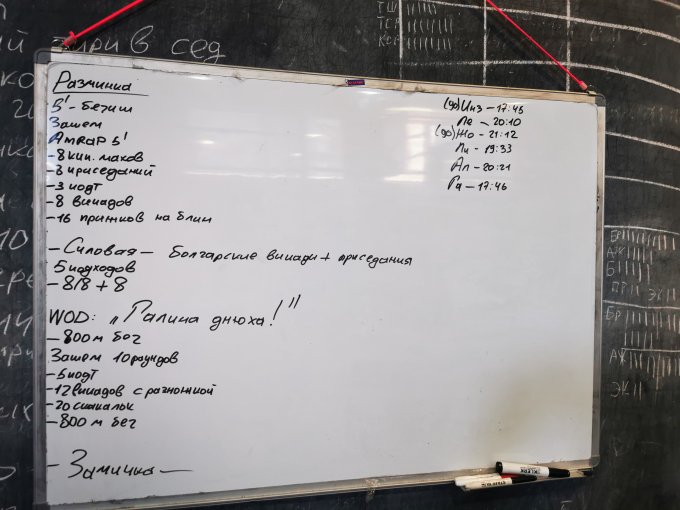 Разминка
5' - бегиш
Зашем
AMRAP 5'
- 8 кип. махов
- 8 приседаний
- 3 подт
- 8 выпадов
- 16 прыжков на блин
- Силовая - Болгарские выпады + приседания
5 подходов
- 8/8 + 8
WOD: „Галина днюха!"
- 800 м бег
Зашем 10 раундов
- 5 подт
- 12 выпадов с разножкой
- 20 скакалк
- 800 м бег
- Заминка -
(90) Инз - 17:45
Ле - 20:10
(90) Жо - 21:12
Ли - 19:33
Ал - 20:21
Га - 17:46
KLERK
в сед
ТШ
ТСР
БР
АЖ
Б
ПТГ ЭК
БР
АЖ
ЭК